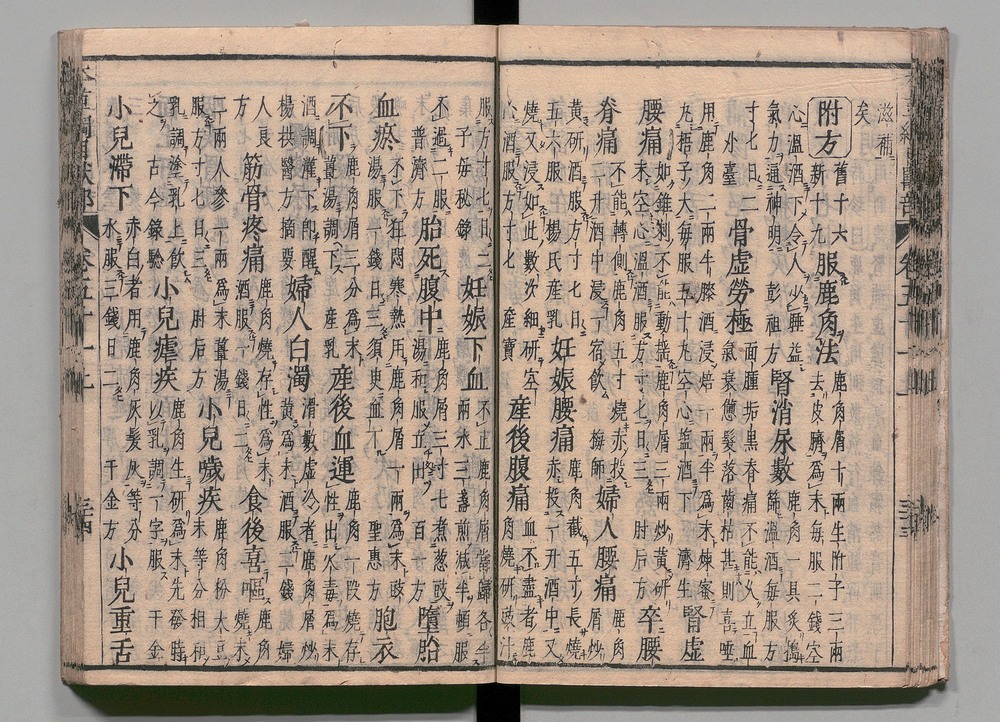 滋補
矣
附方 舊十六 新十九 服鹿角法 鹿角屑十兩生附子三兩 去皮臍爲末每服二錢空
心溫酒下令人少睡益 氣力通神明 彭祖方 腎消尿數 鹿角一具炙擣 篩溫酒每服方
寸七日二 外臺 骨虛勞極 面腫垢黑脊痛不能久立血 氣衰憊髮落齒枯甚則喜唾
用鹿角二兩牛膝酒浸焙一兩半爲末煉蜜 丸梧子大每服五十丸空心鹽酒下 濟生 腎虛
腰痛 如錐刺不能動搖鹿角屑三兩炒黃研 末空心溫酒服方寸七日三 肘后方 卒腰
脊痛 不能轉側鹿角五寸燒赤投 二升酒中浸一宿飲 梅師 婦人腰痛 鹿角屑熬
黃研酒服方寸七日 五六服 楊氏產乳 妊娠腰痛 鹿角截五寸長燒 赤投一升酒中又
燒又浸如此數次細研空 心酒服方寸七 產寶 產後腹痛 血不盡者鹿 角燒研豉汁
服方寸七日二 三 妊娠下血 不止鹿角屑當歸各半 兩水三盞煎減半頓服
不過二服 普濟方 胎死腹中 鹿角屑三寸七煮葱豉 湯和服立出 百一方 墮胎
血瘀 不下狂悶寒熱用鹿角屑一兩爲末豉 湯服一錢日三須臾血下 聖惠方 胞衣
不下 鹿角屑三分爲末 薑湯調下 產乳 產後血運 鹿角一段燒存 性出火毒爲末
酒調灌下卽醒 楊拱醫方摘要 婦人白濁 滑數虛冷者鹿角屑炒 黃爲末酒服二錢 婦
人良方 筋骨疼痛 鹿角燒存性爲末 酒服一錢日二 食後喜嘔 鹿角燒末
二兩人參一兩爲末薑湯 服方寸七日三 肘后方 小兒噦疾 鹿角粉大豆 末等分相和
乳調塗乳上飮 之 古今錄驗 小兒瘧疾 鹿角生研爲末先發時 以乳調一字服 千金
小兒滯下 赤白者用鹿角灰髮灰等分 水服三錢日二 千金方 小兒重舌